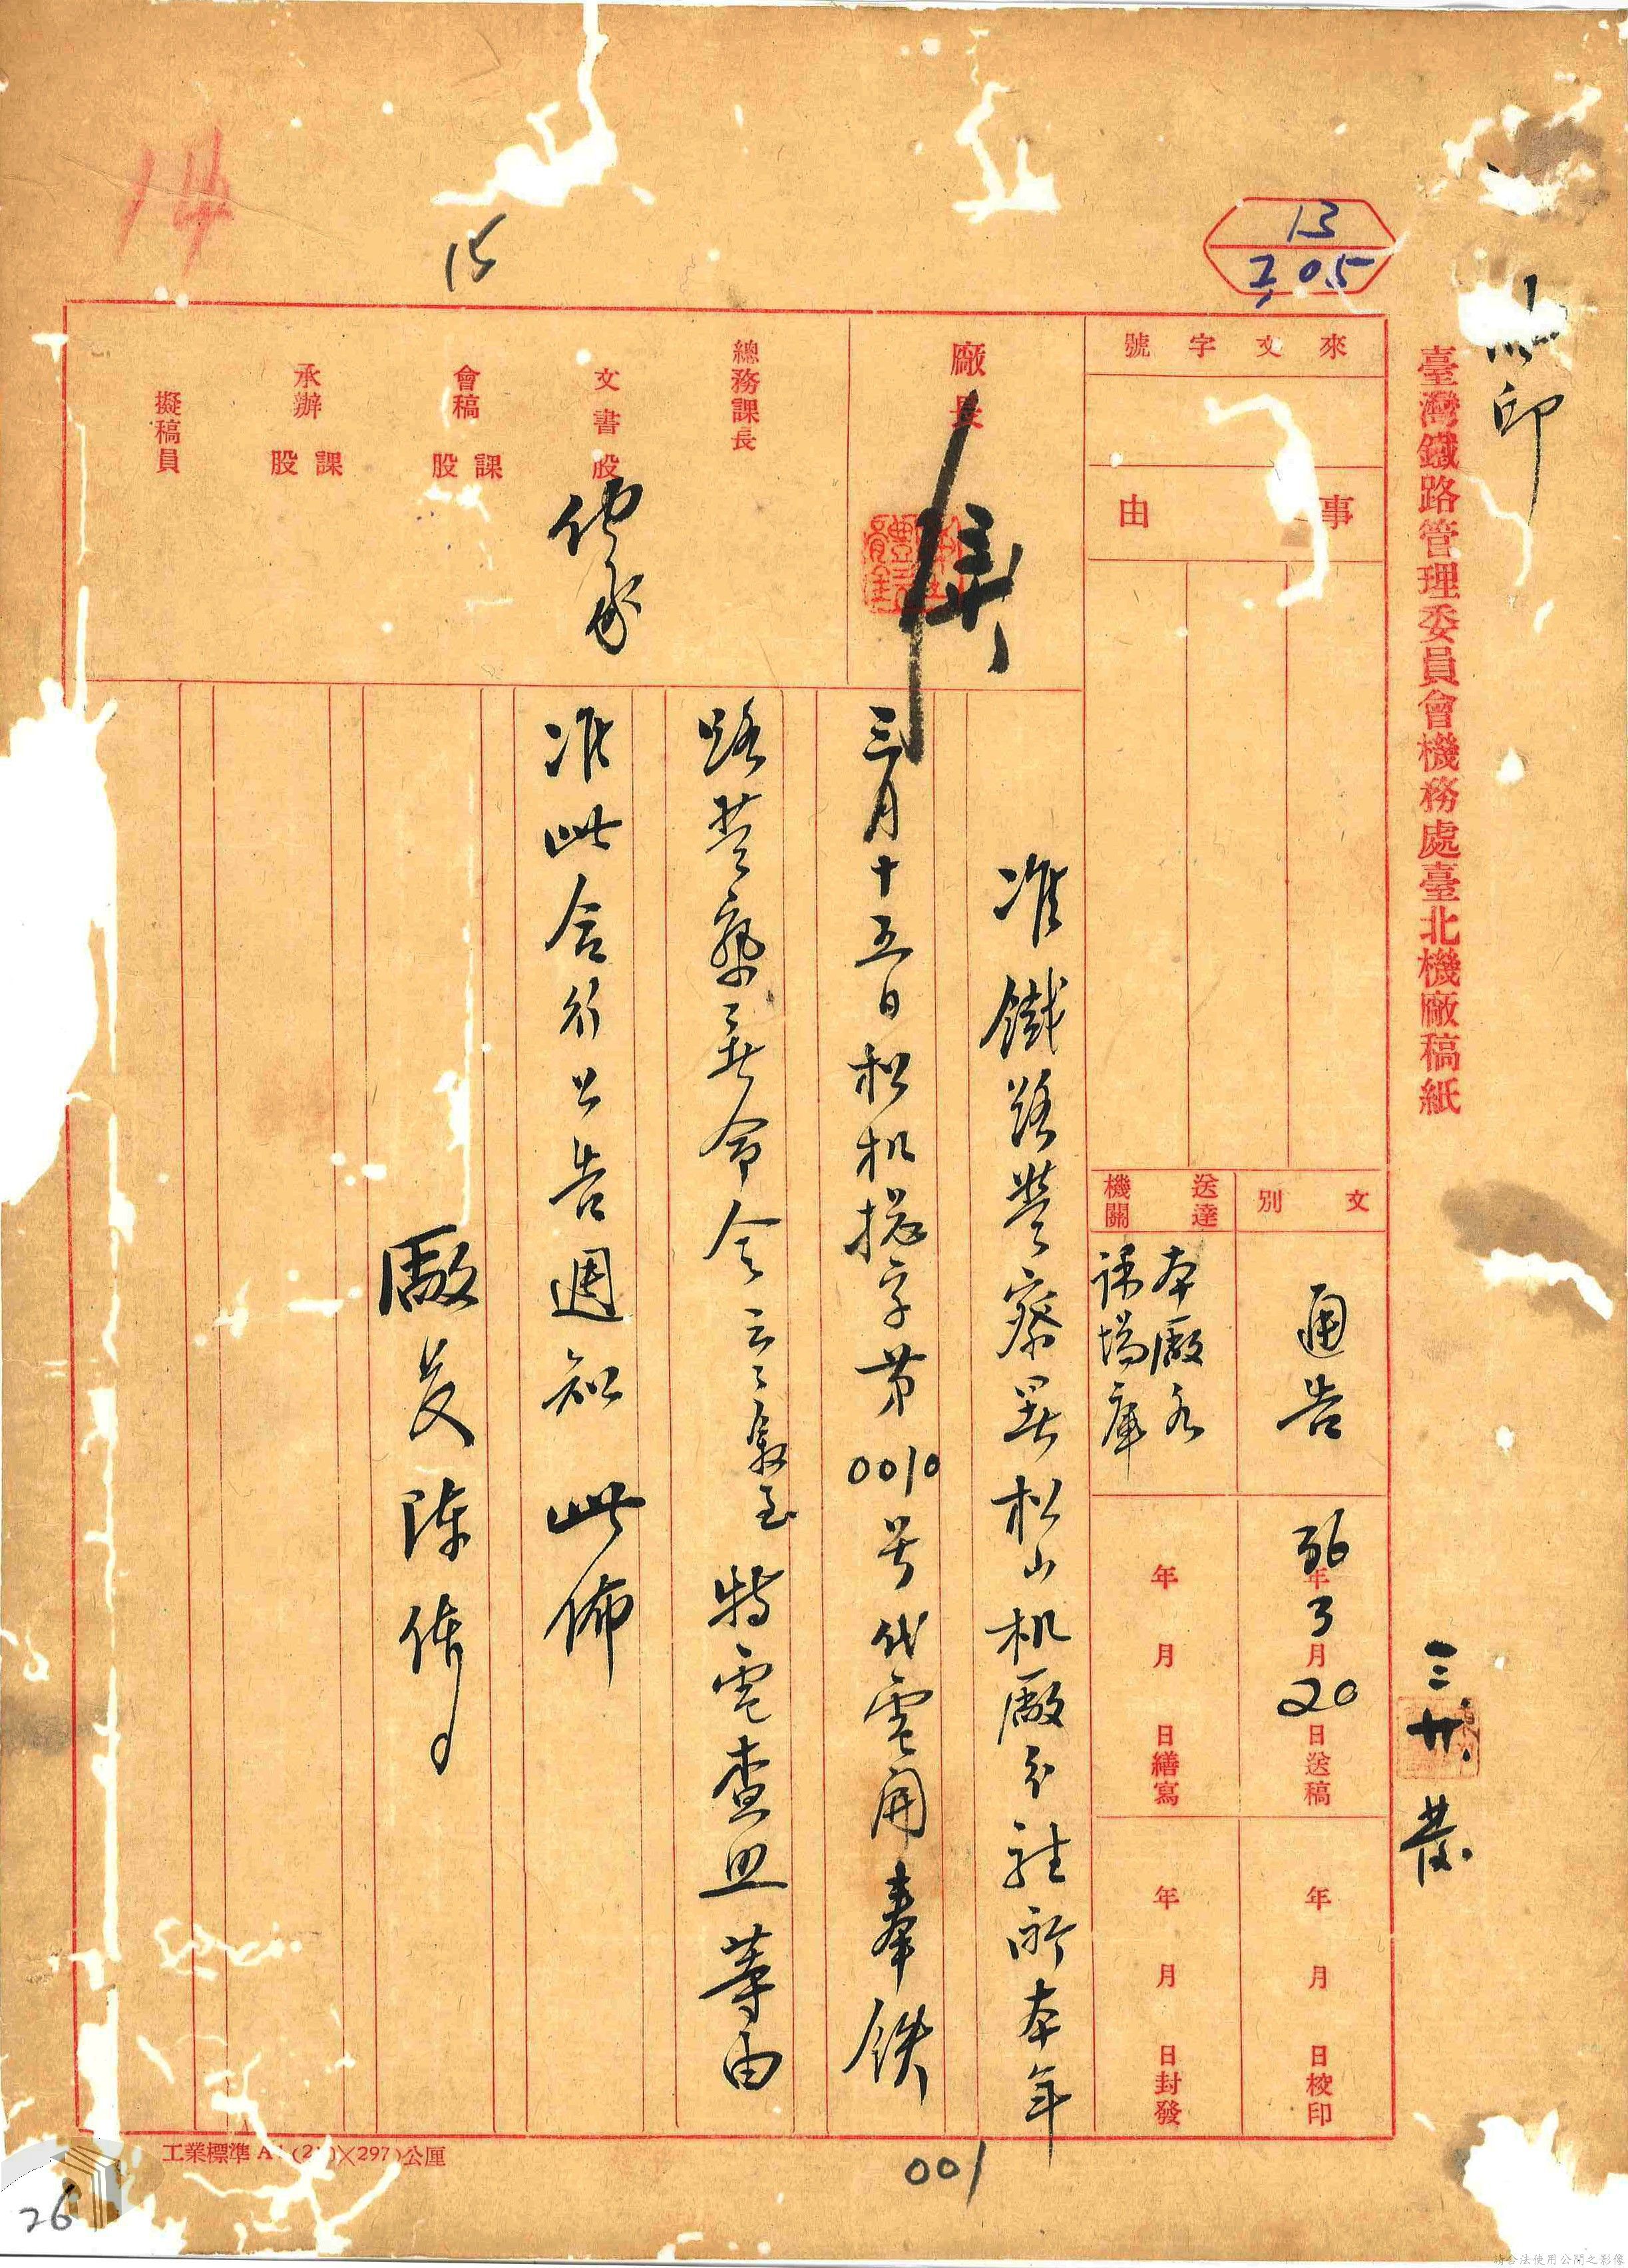 印
臺灣鐵路管理委員會機務處臺北機廠稿紙
三 廿. 發
13
2,05
14
15
來文字號
事由
文別
通告
送達機關
本廠各
課場庫
36年3月20日送稿
年 月 日繕寫
年 月 日校印
年 月 日封發
廠長
總務課長
文書股
會稿 課 股
承辦 課 股
擬稿員
准鐵路警察署松山机廠分駐所本年
三月十五日松机總字第0010号代電開奉鉄
路警察署令 令云々 特電查照等由
准此合行公告週知 此佈
廠長 陳
工業標準A4(210)×297)公厘
001
26
請合法使用公開之影像